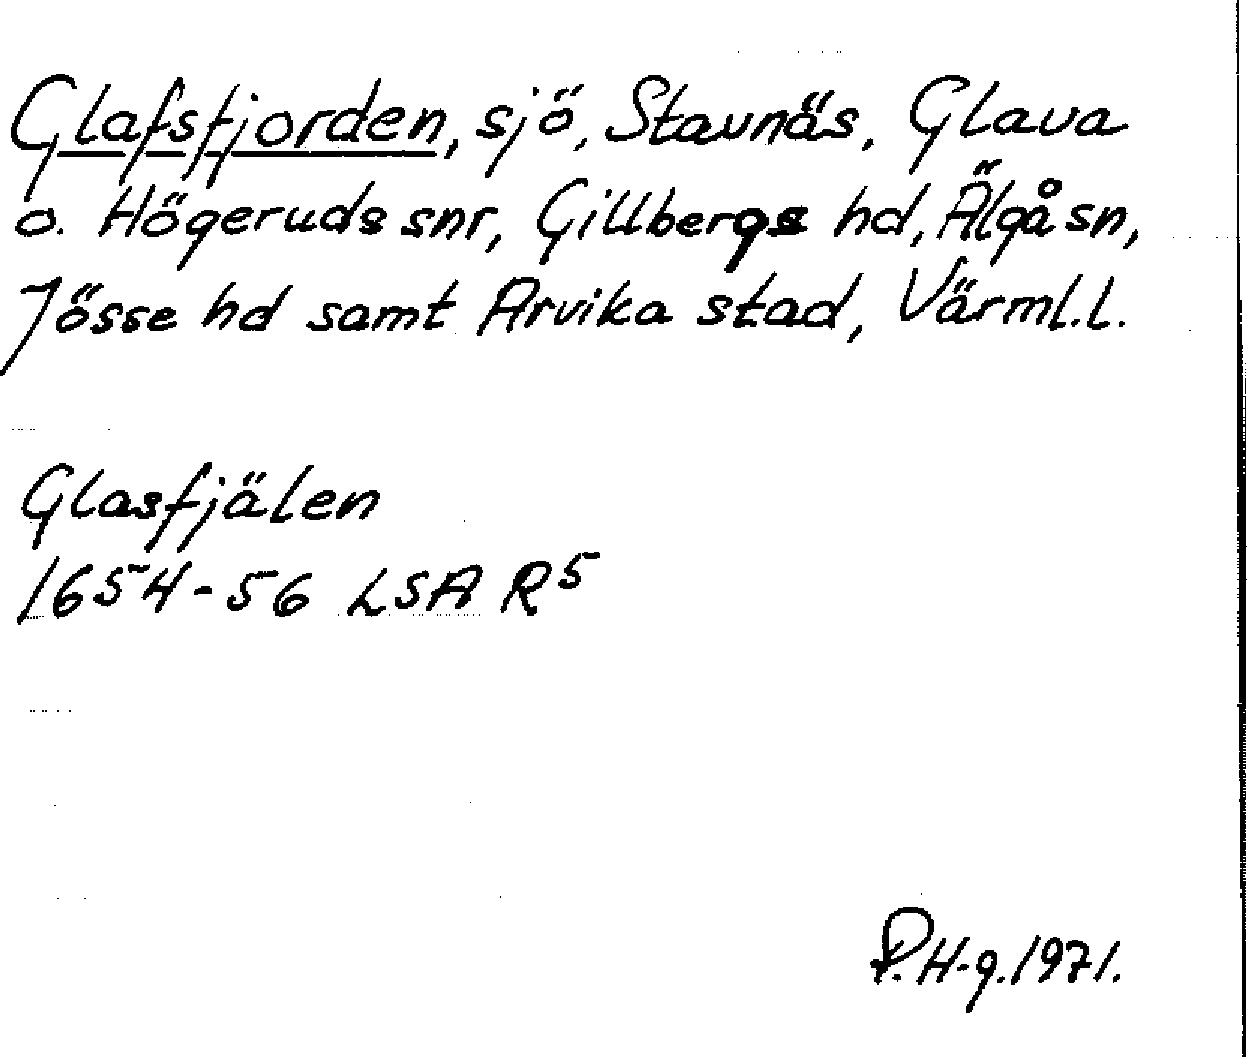 Glafsfjorden, sjö, Stavnäs, Glava
o. Högeruds snr, Gillbergs hd, Älgå sn,
Jösse hd samt Arvika stad, Värml.l.
Glasfjälen
1654-56 LSA R5
P.H-g.1971.